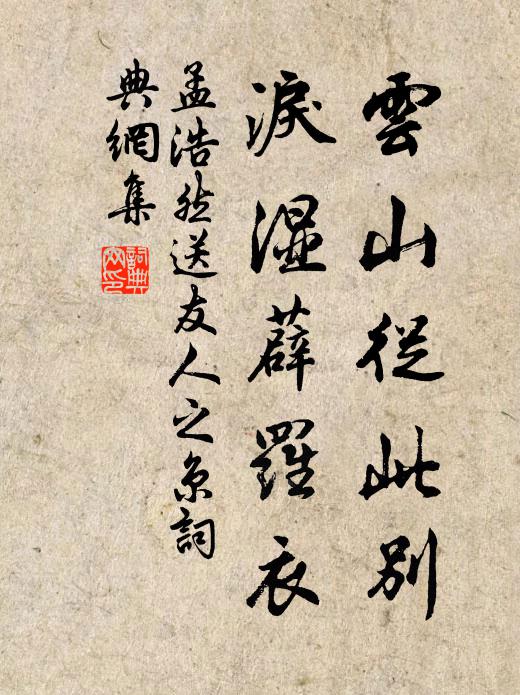 雲山從此別
淚濕薜羅衣
孟浩然送友人之京詞
典網集
詞典
文印